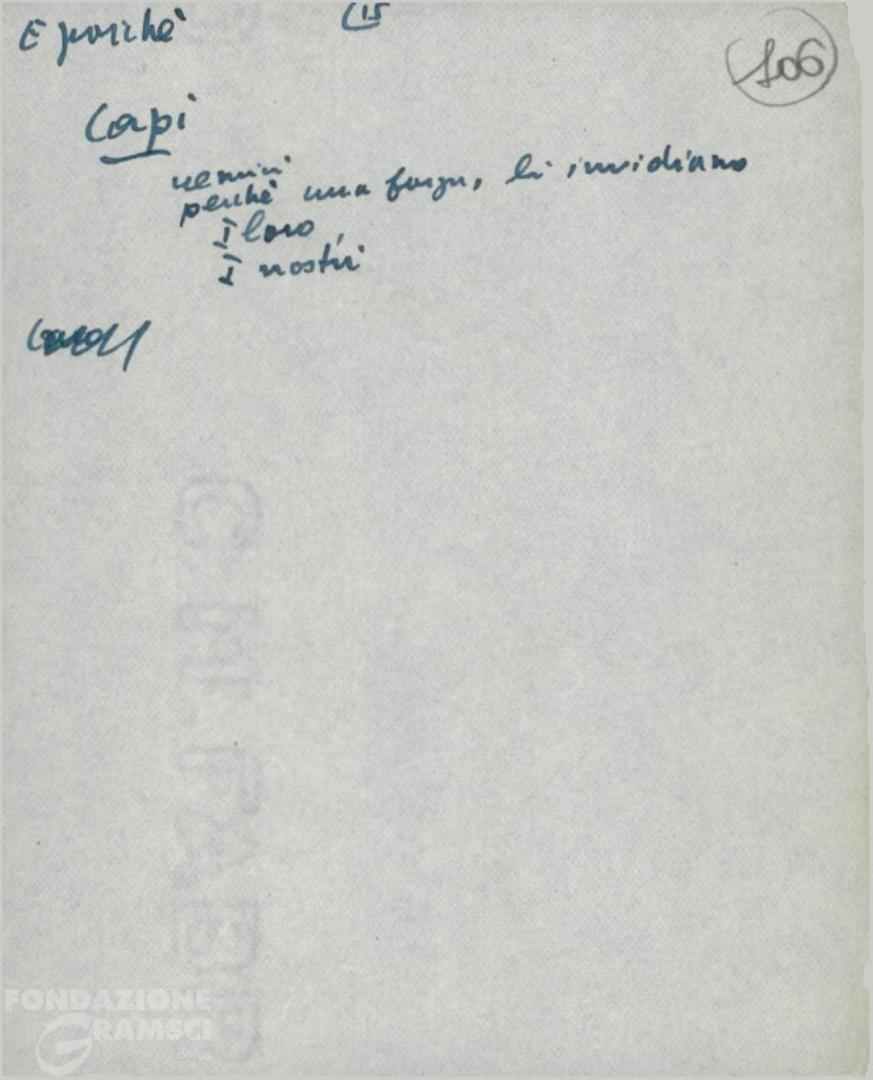 E poichè
15
106
Capi
nemici
perchè una forza, li invidiano
I loro,
I nostri
FONDAZIONE
GRAMSCI
onlus